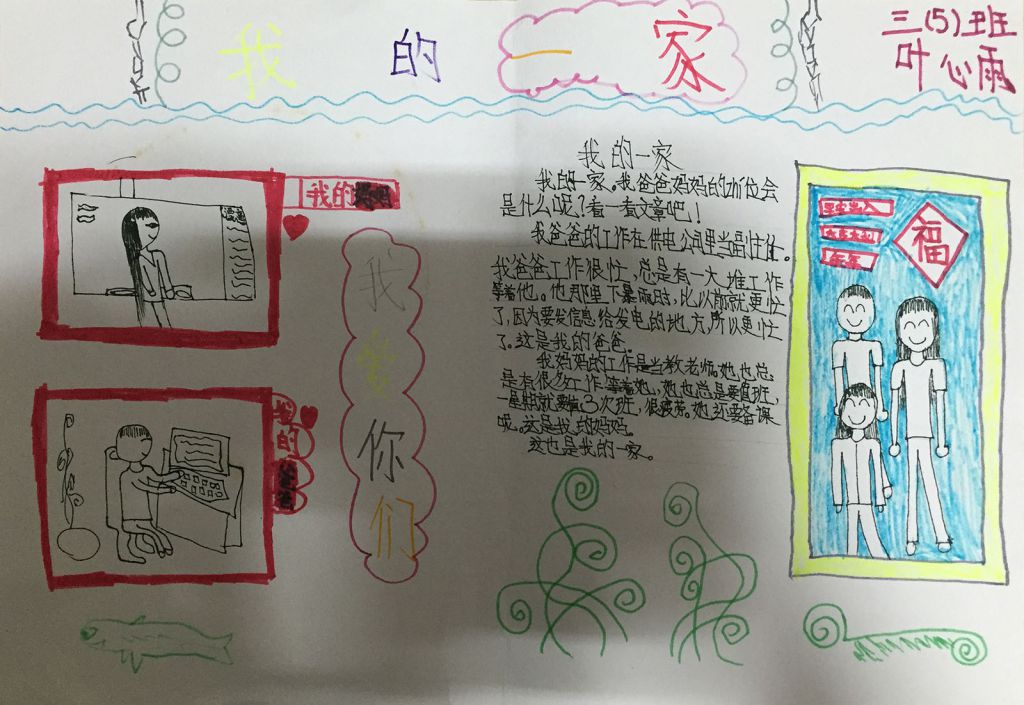 我的一家
三(5)班
叶心雨
我的一家
我的一家。我爸爸妈妈的zhí位会
是什么呢?看一看文章吧!
我爸爸的工作在供电公司里当副主任。
我爸爸工作很忙,总是有一大堆工作
等着他。他那里下暴雨时,比以前就更忙
了,因为要发信息给发电的地方,所以更忙
了。这是我的爸爸。
我妈妈的工作是当教老师。她也总
是有很多工作等着她,她也总是要值班,
一星期就要值3次班,很疲劳。她还要备课
呢。这是我的妈妈。
这也是我的一家。
我的
我的
我爱你们
福